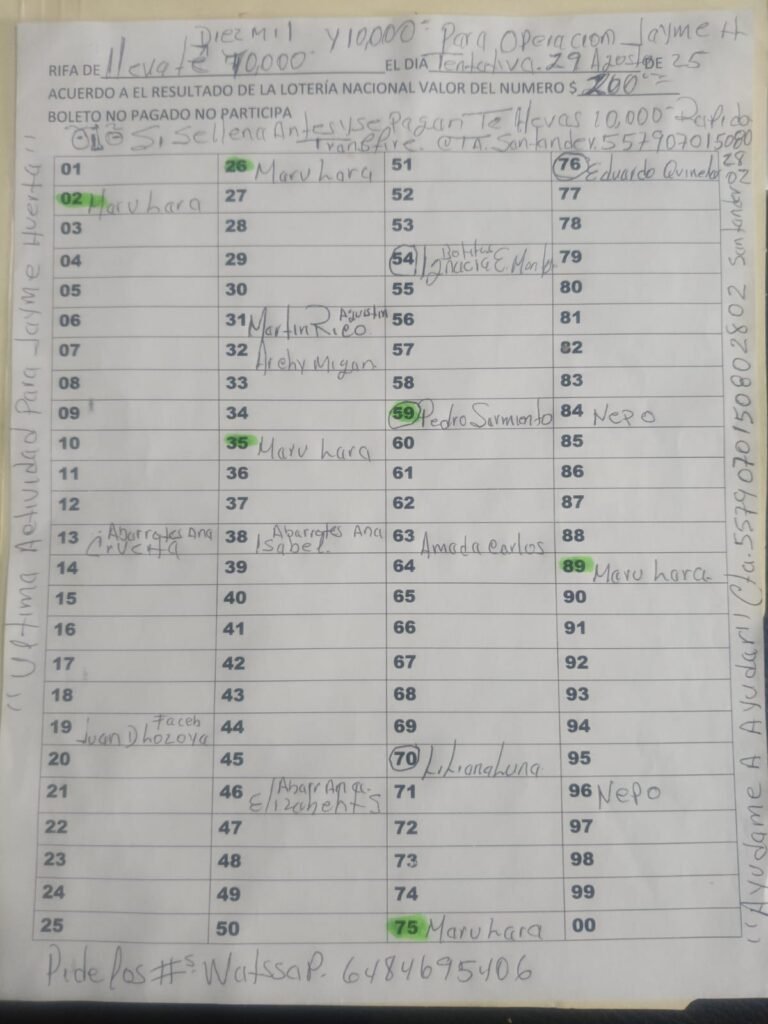 DIEZ MIL Y 10,000= Para Operacion Jayme H
RIFA DE llevate 10,000- EL DIA Tentativa. 29 Agosto DE 25
ACUERDO A EL RESULTADO DE LA LOTERÍA NACIONAL VALOR DEL NUMERO $ 200==
BOLETO NO PAGADO NO PARTICIPA
Si, Se llena Antes y se Pagan Te llevas 10,000- Rapido
Transfire. CTA. Santander. 557907015080
2802
01 26 Maru hara 51 76 Eduardo Quinela
02 Maru hara 27 52 77
03 28 53 78
04 29 54 Bolitas Ignacia E. Monto 79
05 30 55 80
06 31 Martin Rico Agustin 56 81
07 32 Archy Migan 57 82
08 33 58 83
09 34 59 Pedro Sarmiento 84 NePo
10 35 Maru hara 60 85
11 36 61 86
12 37 62 87
13 Abarrotes Ana 38 Abarrotes Ana Isabel. 63 Amada Carlos 88
14 39 64 89 Maru hara
15 40 65 90
16 41 66 91
17 42 67 92
18 43 68 93
19 Faceb Juan D Lozoya 44 69 94
20 45 70 Liliana Luna 95
21 46 71 96 NePo
22 47 72 97
23 48 73 98
24 49 74 99
25 50 75 Maru hara 00
Pide los #s Watssap. 6484695406
"Ultima Actividad Para Jayme Huerta"
"Ayudame A Ayudar" Cta. 5579070150802802 Santander